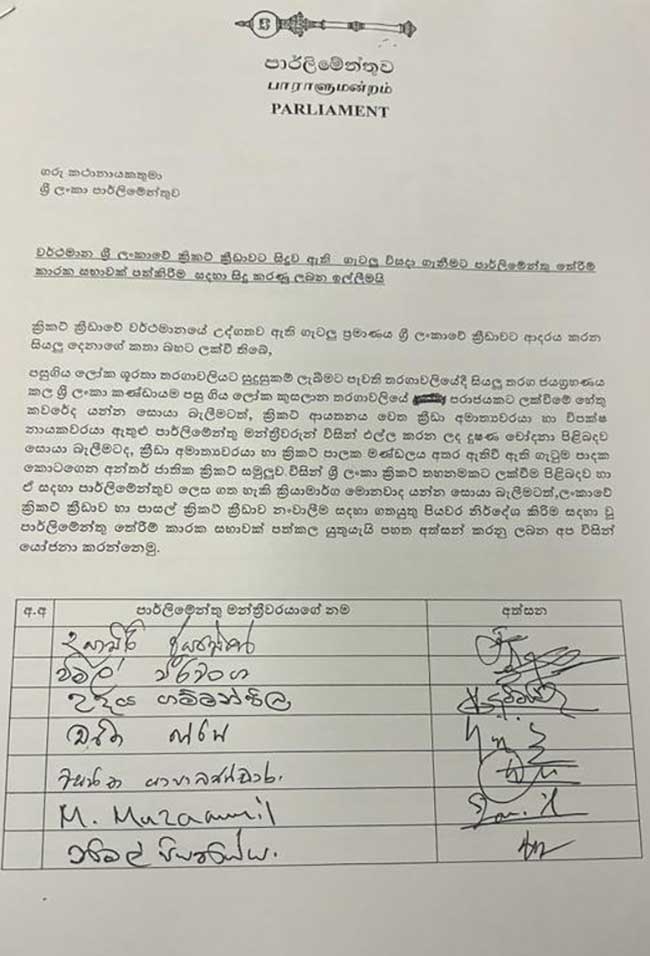 පාර්ලිමේන්තුව
பாராளுமன்றம்
PARLIAMENT
ගරු කථානායකතුමා
ශ්‍රී ලංකා පාර්ලිමේන්තුව
වර්ථමාන ශ්‍රී ලංකාවේ ක්‍රිකට් ක්‍රීඩාවට සිදුව ඇති ගැටලු විසදා ගැනීමට පාර්ලිමේන්තු තේරීම්
කාරක සභාවක් පත්කිරීම සඳහා සිදු කරණු ලබන ඉල්ලීමයි
ක්‍රිකට් ක්‍රීඩාවේ වර්ථමානයේ උද්ගතව ඇති ගැටලු ප්‍රමාණය ශ්‍රී ලංකාවේ ක්‍රීඩාවට ආදරය කරන
සියලු දෙනාගේ කතා බහට ලක්වී තිබේ,
පසුගිය ලෝක ශූරතා තරගාවලියට සුදුසුකම් ලැබීමට පැවති තරගාවලියේදී සියලු තරග ජයග්‍රහණය
කල ශ්‍රී ලංකා කණ්ඩායම පසු ගිය ලෝක කුසලාන තරගාවලියේ පරාජයකට ලක්වීමේ හේතු
කවරේද යන්න සොයා බැලීමටත්, ක්‍රිකට් ආයතනය වෙත ක්‍රීඩා අමාත්‍යවරයා හා විපක්ෂ
නායකවරයා ඇතුළු පාර්ලිමේන්තු මන්ත්‍රීවරුන් විසින් එල්ල කරන ලද දූෂණ චෝදනා පිළිබදව
සොයා බැලීමටද, ක්‍රීඩා අමාත්‍යවරයා හා ක්‍රිකට් පාලක මණ්ඩලය අතර ඇතිවී ඇති ගැටුම පාදක
කොටගෙන අන්තර් ජාතික ක්‍රිකට් සමුලුව.විසින් ශ්‍රී ලංකා ක්‍රිකට් තහනමකට ලක්වීම පිළිබදව හා
ඒ සදහා පාර්ලිමේන්තුව ලෙස ගත හැකි ක්‍රියාමාර්ග මොනවාද යන්න සොයා බැලීමටත්,ලංකාවේ
ක්‍රිකට් ක්‍රීඩාව හා පාසල් ක්‍රිකට් ක්‍රීඩාව නංවාලීම සදහා ගතයුතු පියවර නිර්දේශ කිරීම සදහා වූ
පාර්ලිමේන්තු තේරීම් කාරක සභාවක් පත්කල යුතුයැයි පහත අත්සන් කරනු ලබන අප විසින්
යෝජනා කරන්නෙමු.
අ.අ පාර්ලිමේන්තු මන්ත්‍රීවරයාගේ නම අත්සන
විමල් වීරවංශ
උදය ගම්මන්පිල
M. Muzammil